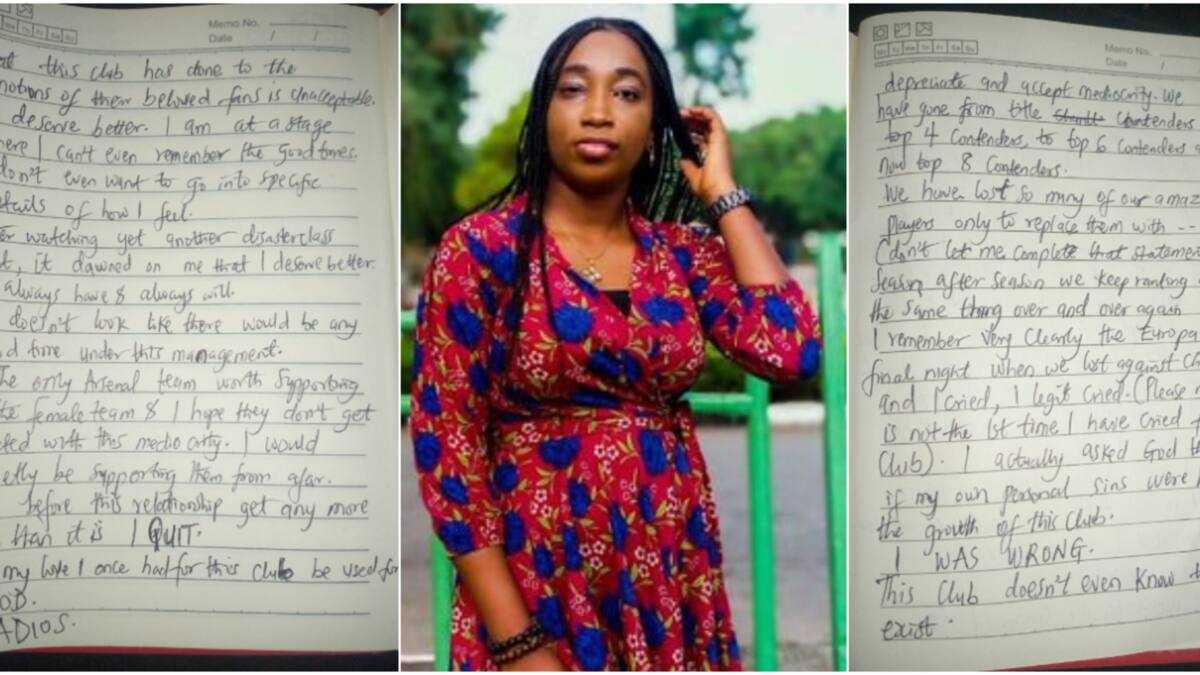 Memo No.
Date / /
this club has done to the
of their beloved fans is unacceptable.
deserve better. I am at a stage
I can't even remember the good times.
even want to go into specific
of how I feel.
watching yet another disasterclass
it dawned on me that I deserve better.
always have & always will.
doesn't look like there would be any
time under this management.
only Arsenal team worth supporting
female team & I hope they don't get
with this mediocrity. I would
be supporting them from afar.
before this relationship get any more
than it is I QUIT.
my love I once had for this club be used for
ADIOS.
Memo No.
Date /
depreciate and accept mediocrity. We
have gone from title contenders
top 4 contenders, to top 6 contenders
now top 8 contenders.
We have lost so many of our
players only to replace them with --
(don't let me complete that
Season after season we keep ranting
the same thing over and over again
I remember very clearly the Europa
final night when we lost against
and I cried, I legit cried. (Please
is not the 1st time I have cried
club). I actually asked God
if my own personal sins were
the growth of this club.
I WAS WRONG.
This club doesn't even know
exist.